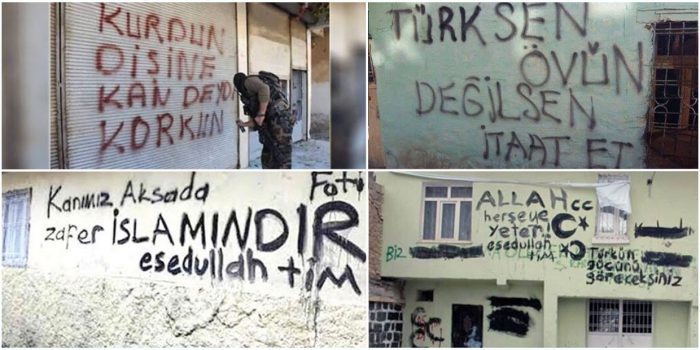 KURDUN
DİŞİNE
KAN DEYDİ
KORKUN
TÜRKSEN
ÖVÜN
DEĞİLSEN
İTAAT ET
Kanımız Aksada
zafer İSLAMINDIR
esedullah tim
ALLAH CC
herşeye
yeter!
esedullah
TİM
Biz
Türkün
gücünü
göreceksiniz